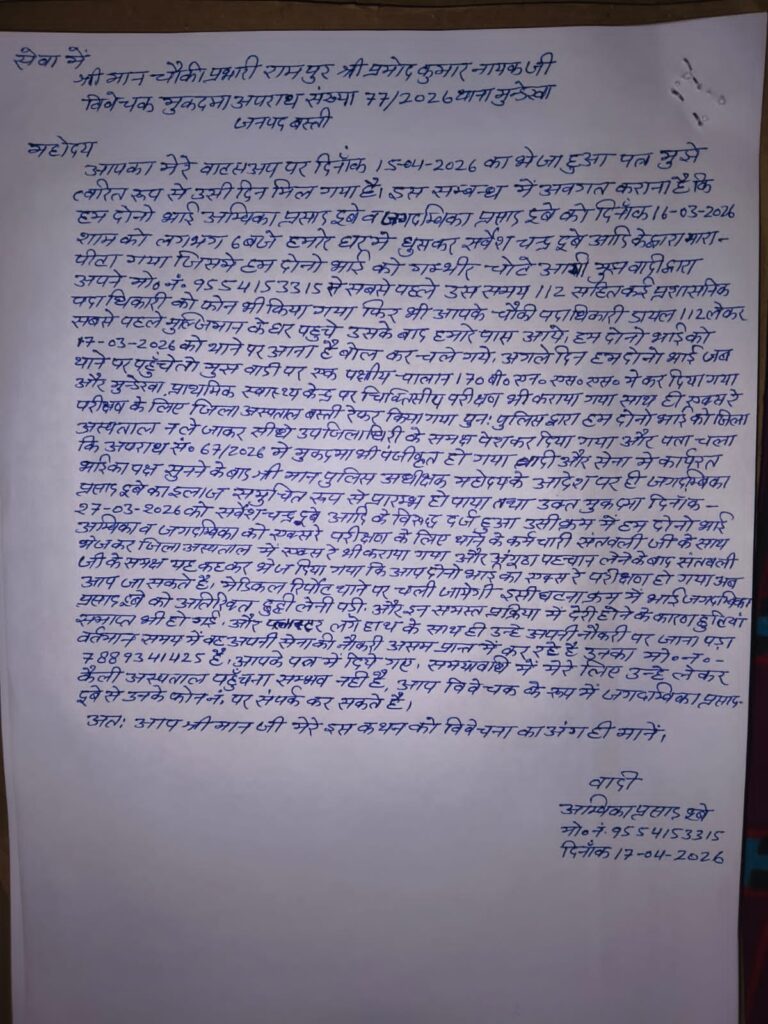 सेवा में
श्री मान चौकी प्रभारी रामपुर श्री प्रमोद कुमार नायक जी
विवेचक मुकदमा अपराध संख्या 77/2026 थाना मुन्डेरवा
जनपद बस्ती
महोदय
आपका मेरे वाटसअप पर दिनाँक 15-04-2026 का भेजा हुआ पत्र मुझे
त्वरित रूप से उसी दिन मिल गया है। इस सम्बन्ध में अवगत कराना है कि
हम दोनो भाई अम्बिका प्रसाद दूबे व जगदम्बिका प्रसाद दूबे को दिनाँक 16-03-2026
शाम को लगभग 6 बजे हमारे घर मे घुसकर सर्वेश चन्द्र दूबे आदि के द्वारा मारा-
पीटा गया जिसमे हम दोनो भाई को गम्भीर चोटे आयी मुझ वादी द्वारा
अपने मो० नं० 9554153315 से सबसे पहले उस समय 112 सहित कई प्रशासनिक
पदाधिकारी को फोन भी किया गया फिर भी आपके चौकी पदाधिकारी डायल 112 लेकर
सबसे पहले मुल्जिमान के घर पहुचे उसके बाद हमारे पास आये, हम दोनो भाई को
17-03-2026 को थाने पर आना है बोल कर चले गये, अगले दिन हम दोनो भाई जब
थाने पर पहुंचे तो मुझ वादी पर एक पक्षीय चालान 170 बी० एन० एस० एस० मे कर दिया गया
और मुन्डेरवा प्राथमिक स्वास्थ्य केन्द्र पर चिकित्सीय परीक्षण भी कराया गया साथ ही एक्सरे
परीक्षण के लिए जिला अस्पताल बस्ती रेफर किया गया पुनः पुलिस द्वारा हम दोनो भाई को जिला
अस्पताल न ले जाकर सीधे उपजिलाधिकारी के समक्ष पेश कर दिया गया और पता चला
कि अपराध सं० 67/2026 मे मुकदमा भी पंजीकृत हो गया वादी और सेना मे कार्यरत
भाई का पक्ष सुनने के बाद श्री मान पुलिस अधीक्षक महोदय के आदेश पर ही जगदम्बिका
प्रसाद दूबे का इलाज समुचित रूप से प्रारम्भ हो पाया तथा उक्त मुकदमा दिनांक-
27-03-2026 को सर्वेश चन्द्र दूबे आदि के विरुद्ध दर्ज हुआ उसी क्रम में हम दोनो भाई
अम्बिका व जगदम्बिका को एक्सरे परीक्षण के लिए थाने के कर्मचारी संतबली जी के साथ
भेजकर जिला अस्पताल मे एक्स रे भी कराया गया और अंगूठा पहचान लेने के बाद संतबली
जी के समक्ष यह कह कर भेज दिया गया कि आप दोनो भाई का एक्स रे परीक्षण हो गया अब
आप जा सकते है, मेडिकल रिपोर्ट थाने पर चली जायेगी इसी घटना क्रम में भाई जगदम्बिका
प्रसाद दूबे को अतिरिक्त छुट्टी लेनी पड़ी और इन समस्त प्रक्रिया में देरी होने के कारण छुट्टियां
समाप्त भी हो गई, और प्लास्टर लगे हाथ के साथ ही उन्हे अपनी नौकरी पर जाना पड़ा
वर्तमान समय में वह अपनी सेना की नौकरी असम प्रान्त में कर रहे है उनका मो०-न०-
7889341425 है, आपके पत्र में दिये गए, समयावधि में मेरे लिए उन्हे लेकर
कैली अस्पताल पहुँचना सम्भव नही है, आप विवेचक के रूप में जगदम्बिका प्रसाद-
दूबे से उनके फोन नं. पर संपर्क कर सकते है।
अतः आप श्री मान जी मेरे इस कथन को विवेचना का अंग ही मानें।
वादी
अम्बिका प्रसाद दूबे
मो० नं० 9554153315
दिनाँक 17-04-2026